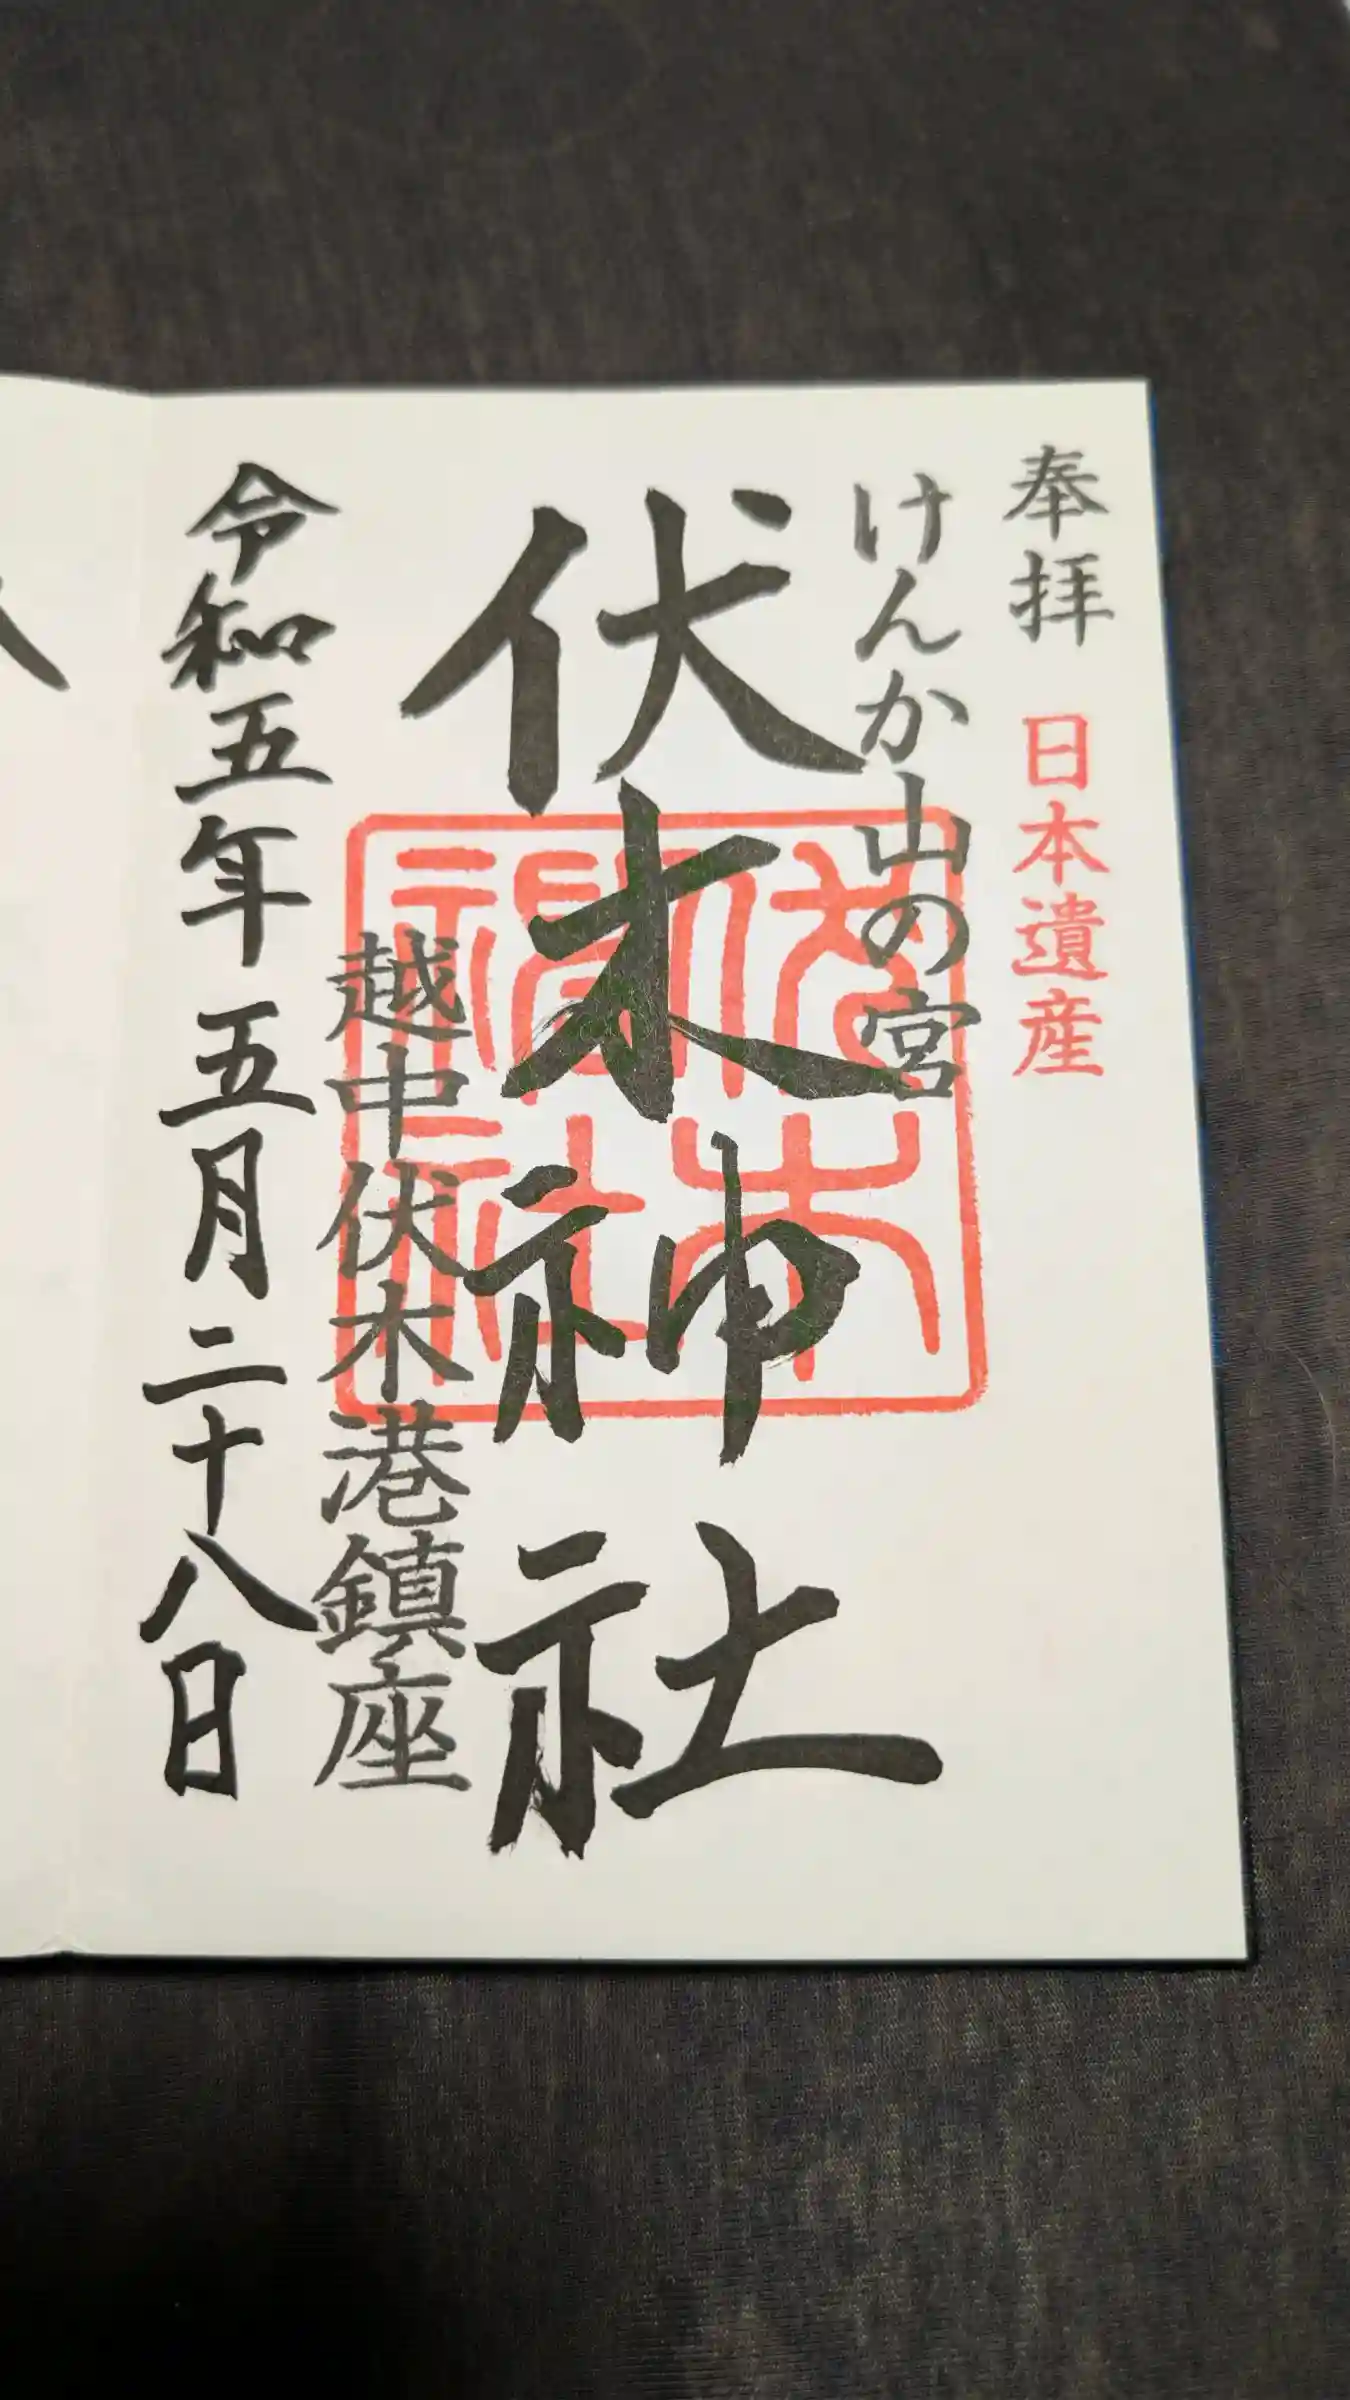 奉拝 日本遺産
けんか山の宮
伏木神社
伏木神社
越中伏木港鎮座
令和五年五月二十八日